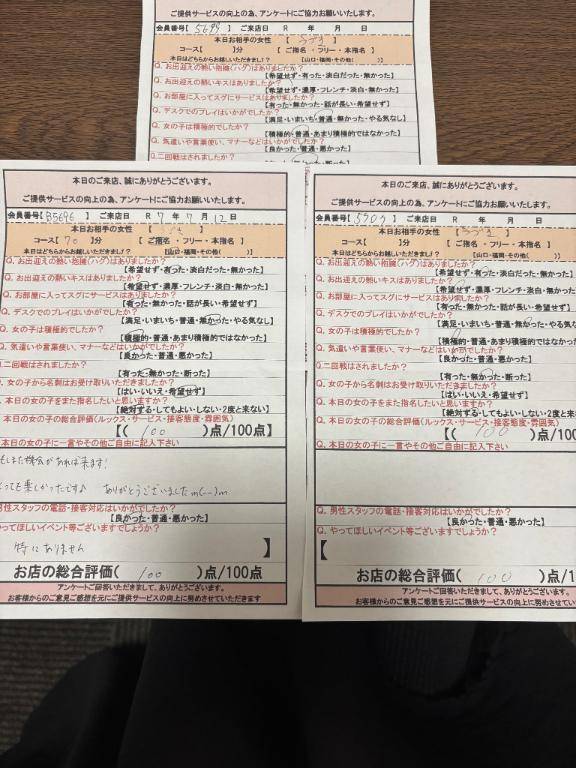 ご提供サービスの向上の為、アンケートにご協力お願いいたします。
会員番号【5699 】ご来店日 R 年 月 日
本日お相手の女性 【 】
コース【 】分 【 ご指名 ・ フリー ・ 本指名 】
本日はどちらからお越しいただきましたか? 【山口・福岡・その他( )】
Q. お出迎えの熱い抱擁(ハグ)はありましたか?
【希望せず・有った・淡白だった・無かった】
Q. お出迎えの熱いキスはありましたか?
【希望せず・濃厚・フレンチ・淡白・無かった】
Q. お部屋に入ってスグにサービスはありましたか?
【有った・無かった・話が長い・希望せず】
Q. デスクでのプレイはいかがでしたか?
【満足・いまいち・普通・無かった・やる気なし】
Q. 女の子は積極的でしたか?
【積極的・普通・あまり積極的ではなかった】
Q. 気遣いや言葉使い、マナーなどはいかがでしたか?
【良かった・普通・悪かった】
Q. 二回戦はされましたか?
本日のご来店、誠にありがとうございます。
ご提供サービスの向上の為、アンケートにご協力お願いいたします。
会員番号【B5696 】ご来店日 R 7 年 7 月 12 日
本日お相手の女性 【 】
コース【 70 】分 【 ご指名 ・ フリー ・ 本指名 】
Q. お出迎えの熱い抱擁(ハグ)はありましたか?
【希望せず・有った・淡白だった・無かった】
Q. お出迎えの熱いキスはありましたか?
【希望せず・濃厚・フレンチ・淡白・無かった】
Q. お部屋に入ってスグにサービスはありましたか?
【有った・無かった・話が長い・希望せず】
Q. デスクでのプレイはいかがでしたか?
【満足・いまいち・普通・無かった・やる気なし】
Q. 女の子は積極的でしたか?
【積極的・普通・あまり積極的ではなかった】
Q. 気遣いや言葉使い、マナーなどはいかがでしたか?
【良かった・普通・悪かった】
二回戦はされましたか?
【有った・無かった・断った】
Q. 女の子から名刺はお受け取りいただきましたか?
【はい・いいえ・希望せず】
本日の女の子をまた指名したいと思いますか?
【絶対する・してもよい・しない・2度と来ない】
本日の女の子の総合評価(ルックス・サービス・接客態度・雰囲気)
【( 100 )点/100点】
本日の女の子に一言やその他ご自由に記入下さい
もしまた機会があれば来ます!
とっても楽しかったです♪ ありがとうございましたm(--)m
男性スタッフの電話・接客対応はいかがでしたか?
【良かった・普通・悪かった】
やってほしいイベント等ございますでしょうか?
特にありません 】
お店の総合評価( 100 )点/100点
アンケートご回答いただきまして、ありがとうございます。
お客様からのご意見ご感想を元にご提供サービスの向上に努めさせていただきます
本日のご来店、誠にありがとうございます。
ご提供サービスの向上の為、アンケートにご協力お願いいたします。
会員番号【5909 】ご来店日 R 年 月 日
本日お相手の女性 【 】
コース【 】分 【 ご指名 ・ フリー ・ 本指名 】
Q. お出迎えの熱い抱擁(ハグ)はありましたか?
【希望せず・有った・淡白だった・無かった】
Q. お出迎えの熱いキスはありましたか?
【希望せず・濃厚・フレンチ・淡白・無かった】
Q. お部屋に入ってスグにサービスはありましたか?
【有った・無かった・話が長い・希望せず】
Q. デスクでのプレイはいかがでしたか?
【満足・いまいち・普通・無かった・やる気なし】
Q. 女の子は積極的でしたか?
【積極的・普通・あまり積極的ではなかった】
Q. 気遣いや言葉使い、マナーなどはいかがでしたか?
【良かった・普通・悪かった】
Q. 二回戦はされましたか?
【有った・無かった・断った】
Q. 女の子から名刺はお受け取りいただきましたか?
【はい・いいえ・希望せず】
Q. 本日の女の子をまた指名したいと思いますか?
【絶対する・してもよい・しない・2度と来ない】
Q. 本日の女の子の総合評価(ルックス・サービス・接客態度・雰囲気)
【( 100 )点/100点
Q. 本日の女の子に一言やその他ご自由に記入下さい
Q. 男性スタッフの電話・接客対応はいかがでしたか?
【良かった・普通・悪かった】
Q. やってほしいイベント等ございますでしょうか?
【
お店の総合評価( 100 )点/1
アンケートご回答いただきまして、ありがとうございます。
お客様からのご意見ご感想を元にご提供サービスの向上に努めさせていた